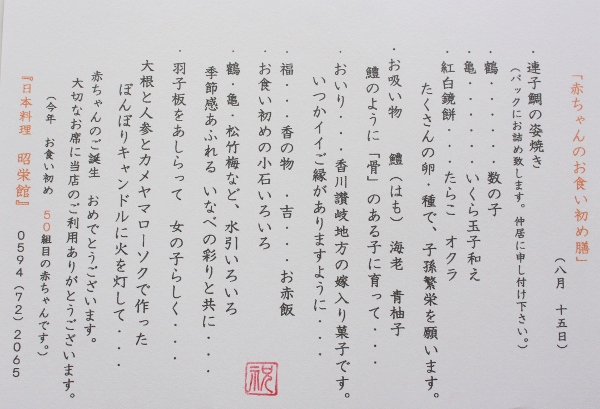 「赤ちゃんのお食い初め膳」
（八月　十五日）
・連子鯛の姿焼き
（パックにお詰め致します。仲居に申し付け下さい。）
・鶴・・・・・・数の子
・亀・・・・・・いくら玉子和え
・紅白鏡餅・・・・たらこ　オクラ
たくさんの卵・種で、子孫繁栄を願います。
・お吸い物　　鱧（はも）　海老　青柚子
鱧のように「骨」のある子に育って・・・
・おいり・・・香川讃岐地方の嫁入り菓子です。
いつかイイご縁がありますように・・・
・福・・・香の物　・吉・・・お赤飯
・お食い初めの小石いろいろ
・鶴・亀・松竹梅など、水引いろいろ
季節感あふれる　いなべの彩りと共に・・・
・羽子板をあしらって　女の子らしく・・・
大根と人参とカメヤマローソクで作った
ぼんぼりキャンドルに火を灯して・・・
赤ちゃんのご誕生　おめでとうございます。
大切なお席に当店のご利用ありがとうございます。
（今年　お食い初め　５０組目の赤ちゃんです。）
『日本料理　昭栄館』　０５９４（７２）２０６５
祝